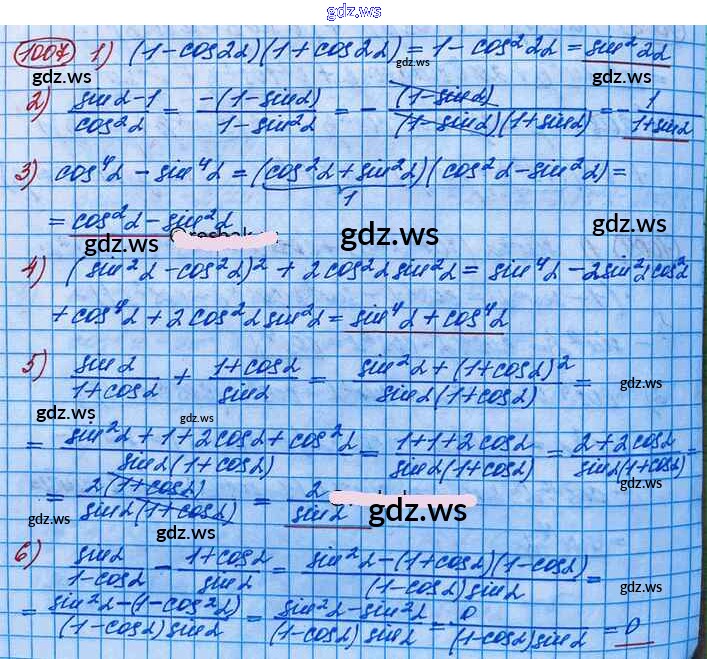 gdz.ws
1007 1) (1-cos2α)(1+cos2α)=1-cos²2α=sin²2α
gdz.ws gdz.ws gdz.ws
2) (sinα-1)/cos²α = -(1-sinα)/(1-sin²α) = -(1-sinα)/((1-sinα)(1+sinα)) = -1/(1+sinα)
3) cos⁴α-sin⁴α=(cos²α+sin²α)(cos²α-sin²α)=
1
=cos²α-sin²α
gdz.ws gdz.ws gdz.ws
4) (sin²α-cos²α)²+2cos²α sin²α=sin⁴α-2sin²α cos²α
+cos⁴α+2cos²α sin²α=sin⁴α+cos⁴α
5) sinα/(1+cosα) + (1+cosα)/sinα = (sin²α+(1+cosα)²)/(sinα(1+cosα)) =
gdz.ws gdz.ws gdz.ws
= (sin²α+1+2cosα+cos²α)/(sinα(1+cosα)) = (1+1+2cosα)/(sinα(1+cosα)) = (2+2cosα)/(sinα(1+cosα)) =
gdz.ws
= 2(1+cosα)/(sinα(1+cosα)) = 2/sinα
gdz.ws gdz.ws gdz.ws
6) sinα/(1-cosα) - (1+cosα)/sinα = (sin²α-(1+cosα)(1-cosα))/((1-cosα)sinα) =
gdz.ws
= (sin²α-(1-cos²α))/((1-cosα)sinα) = (sin²α-sin²α)/((1-cosα)sinα) = 0/((1-cosα)sinα) = 0
gdz.ws gdz.ws